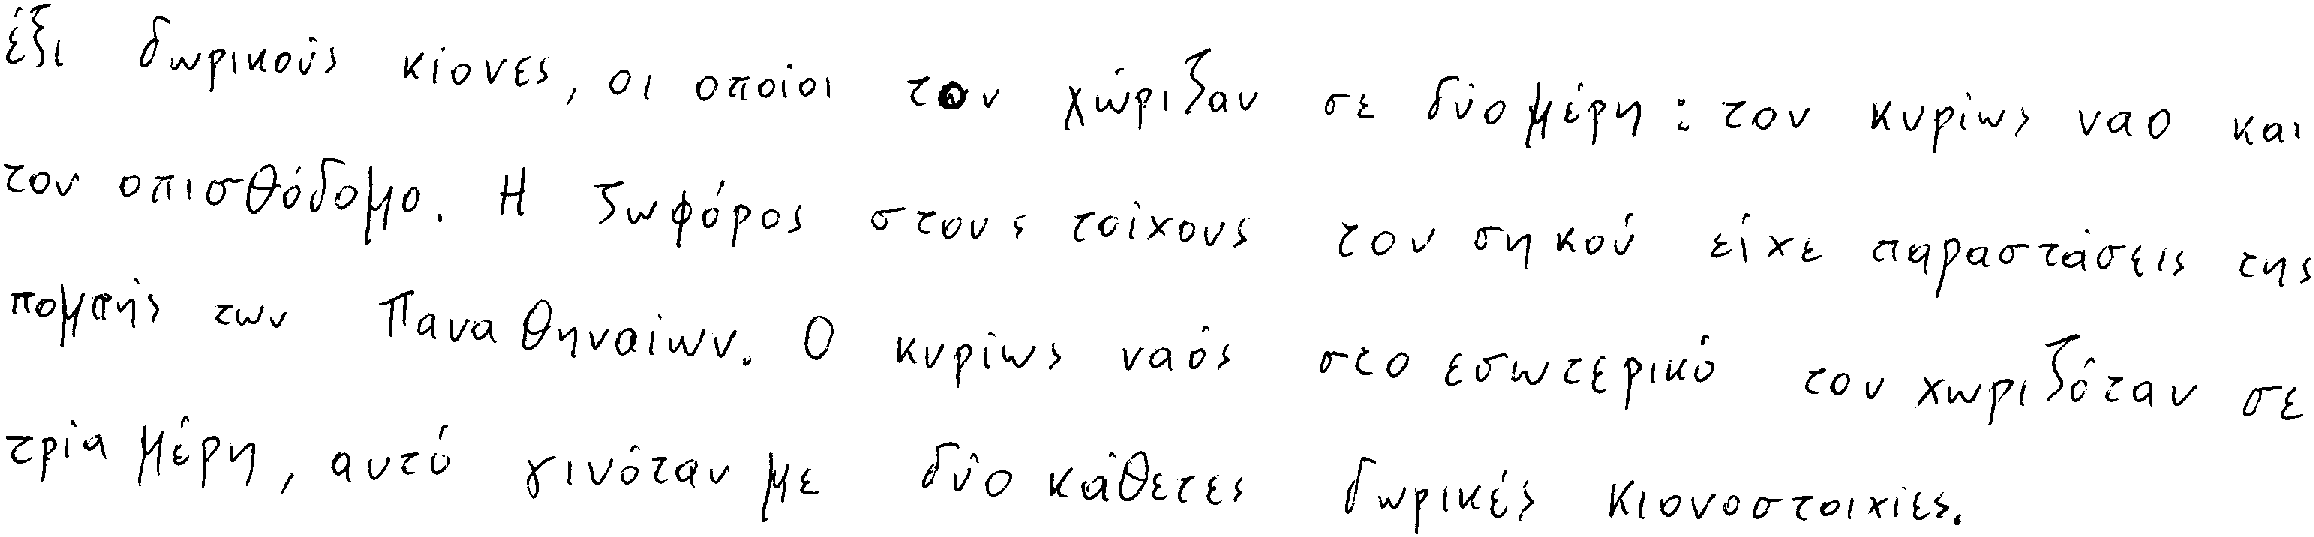 έξι δωρικούς κίονες, οι οποίοι τον χώριζαν σε δύο μέρη: τον κυρίως ναο και
τον οπισθόδομο. Η ζωφόρος στους τοίχους του σηκού είχε παραστάσεις της
πομπής των Παναθηναίων. Ο κυρίως ναός στο εσωτερικό του χωριζόταν σε
τρία μέρη, αυτό γινόταν με δύο κάθετες δωρικές κιονοστοιχίες.